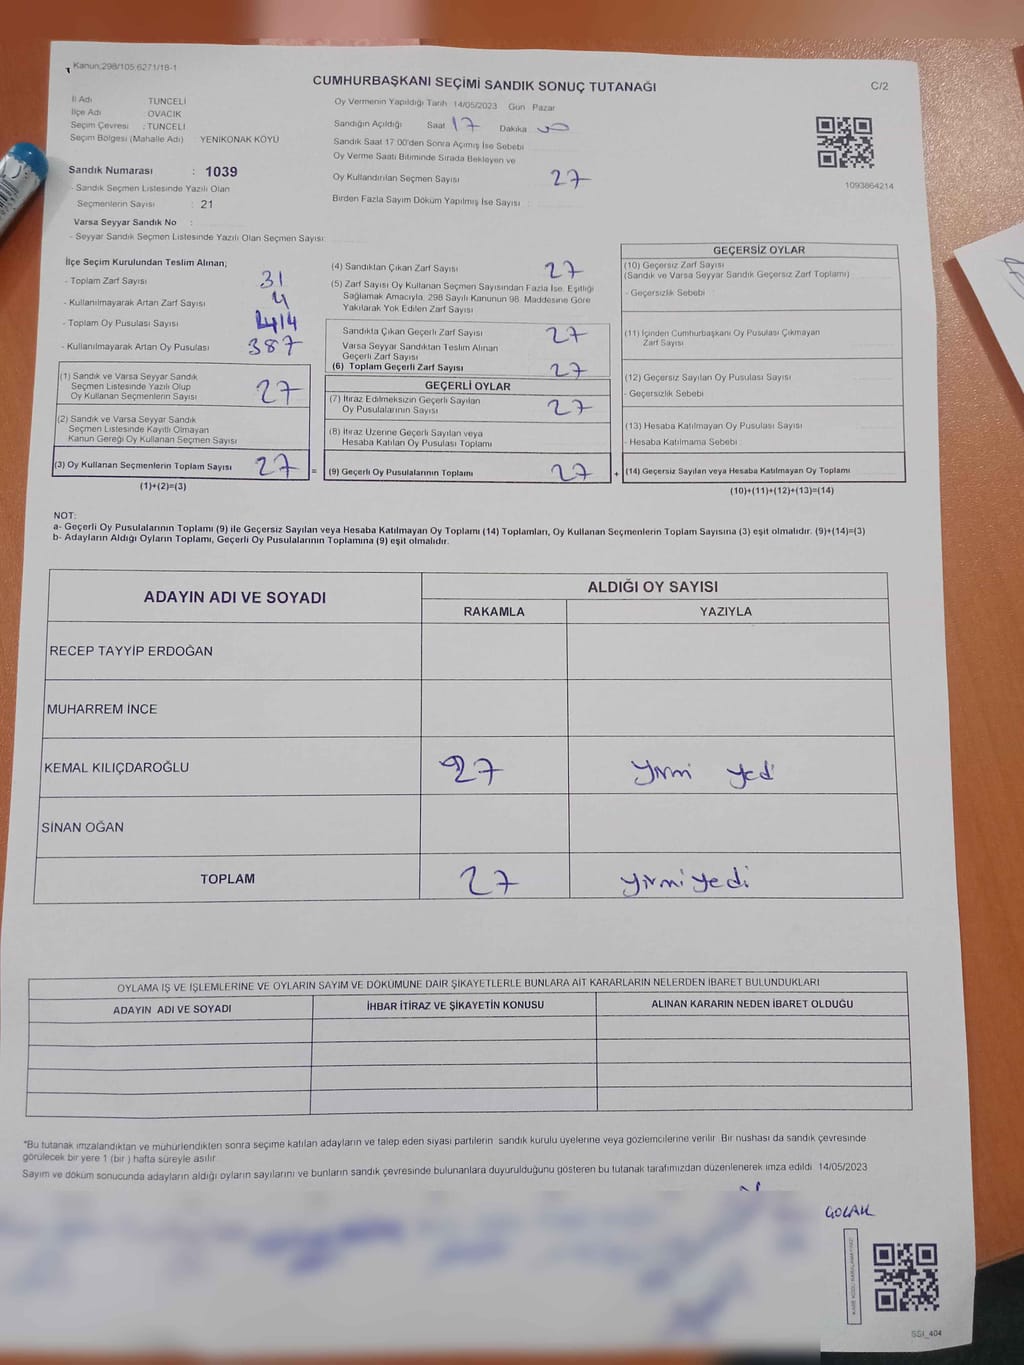 Kanun:298/105 6271/18-1
CUMHURBAŞKANI SEÇİMİ SANDIK SONUÇ TUTANAĞI
C/2
İl Adı TUNCELİ
İlçe Adı OVACIK
Seçim Çevresi : TUNCELİ
Seçim Bölgesi (Mahalle Adı) YENİKONAK KÖYÜ
Sandık Numarası : 1039
- Sandık Seçmen Listesinde Yazılı Olan
Seçmenlerin Sayısı : 21
Varsa Seyyar Sandık No :
- Seyyar Sandık Seçmen Listesinde Yazılı Olan Seçmen Sayısı:
Oy Vermenin Yapıldığı Tarih 14/05/2023 Gün : Pazar
Sandığın Açıldığı Saat 17 Dakika
Sandık Saat 17:00'den Sonra Açılmış İse Sebebi
Oy Verme Saati Bitiminde Sırada Bekleyen ve
Oy Kullandırılan Seçmen Sayısı 27
Birden Fazla Sayım Döküm Yapılmış İse Sayısı :
1093864214
İlçe Seçim Kurulundan Teslim Alınan;
- Toplam Zarf Sayısı 31
- Kullanılmayarak Artan Zarf Sayısı 4
- Toplam Oy Pusulası Sayısı 414
- Kullanılmayarak Artan Oy Pusulası 387
(1) Sandık ve Varsa Seyyar Sandık
Seçmen Listesinde Yazılı Olup
Oy Kullanan Seçmenlerin Sayısı 27
(2) Sandık ve Varsa Seyyar Sandık
Seçmen Listesinde Kayıtlı Olmayan
Kanun Gereği Oy Kullanan Seçmen Sayısı
(3) Oy Kullanan Seçmenlerin Toplam Sayısı 27 =
(1)+(2)=(3)
(4) Sandıktan Çıkan Zarf Sayısı 27
(5) Zarf Sayısı Oy Kullanan Seçmen Sayısından Fazla İse, Eşitliği
Sağlamak Amacıyla, 298 Sayılı Kanunun 98. Maddesine Göre
Yakılarak Yok Edilen Zarf Sayısı
Sandıkta Çıkan Geçerli Zarf Sayısı 27
Varsa Seyyar Sandıktan Teslim Alınan
Geçerli Zarf Sayısı
(6) Toplam Geçerli Zarf Sayısı 27
GEÇERLİ OYLAR
(7) İtiraz Edilmeksizin Geçerli Sayılan
Oy Pusulalarının Sayısı 27
(8) İtiraz Üzerine Geçerli Sayılan veya
Hesaba Katılan Oy Pusulası Toplamı
(9) Geçerli Oy Pusulalarının Toplamı 27 +
GEÇERSİZ OYLAR
(10) Geçersiz Zarf Sayısı
(Sandık ve Varsa Seyyar Sandık Geçersiz Zarf Toplamı)
- Geçersizlik Sebebi
(11) İçinden Cumhurbaşkanı Oy Pusulası Çıkmayan
Zarf Sayısı
(12) Geçersiz Sayılan Oy Pusulası Sayısı
- Geçersizlik Sebebi
(13) Hesaba Katılmayan Oy Pusulası Sayısı
- Hesaba Katılmama Sebebi
(14) Geçersiz Sayılan veya Hesaba Katılmayan Oy Toplamı
(10)+(11)+(12)+(13)=(14)
NOT:
a- Geçerli Oy Pusulalarının Toplamı (9) ile Geçersiz Sayılan veya Hesaba Katılmayan Oy Toplamı (14) Toplamları, Oy Kullanan Seçmenlerin Toplam Sayısına (3) eşit olmalıdır. (9)+(14)=(3)
b- Adayların Aldığı Oyların Toplamı, Geçerli Oy Pusulalarının Toplamına (9) eşit olmalıdır.
ADAYIN ADI VE SOYADI
ALDIĞI OY SAYISI
RAKAMLA YAZIYLA
RECEP TAYYİP ERDOĞAN
MUHARREM İNCE
KEMAL KILIÇDAROĞLU 27 yirmi yedi
SİNAN OĞAN
TOPLAM 27 yirmi yedi
OYLAMA İŞ VE İŞLEMLERİNE VE OYLARIN SAYIM VE DÖKÜMÜNE DAİR ŞİKAYETLERLE BUNLARA AİT KARARLARIN NELERDEN İBARET BULUNDUKLARI
ADAYIN ADI VE SOYADI İHBAR İTİRAZ VE ŞİKAYETİN KONUSU ALINAN KARARIN NEDEN İBARET OLDUĞU
*Bu tutanak imzalandıktan ve mühürlendikten sonra seçime katılan adayların ve talep eden siyasi partilerin sandık kurulu üyelerine veya gözlemcilerine verilir. Bir nüshası da sandık çevresinde
görülecek bir yere 1 (bir) hafta süreyle asılır.
Sayım ve döküm sonucunda adayların aldığı oyların sayılarını ve bunların sandık çevresinde bulunanlara duyurulduğunu gösteren bu tutanak tarafımızdan düzenlenerek imza edildi 14/05/2023
SSİ_404